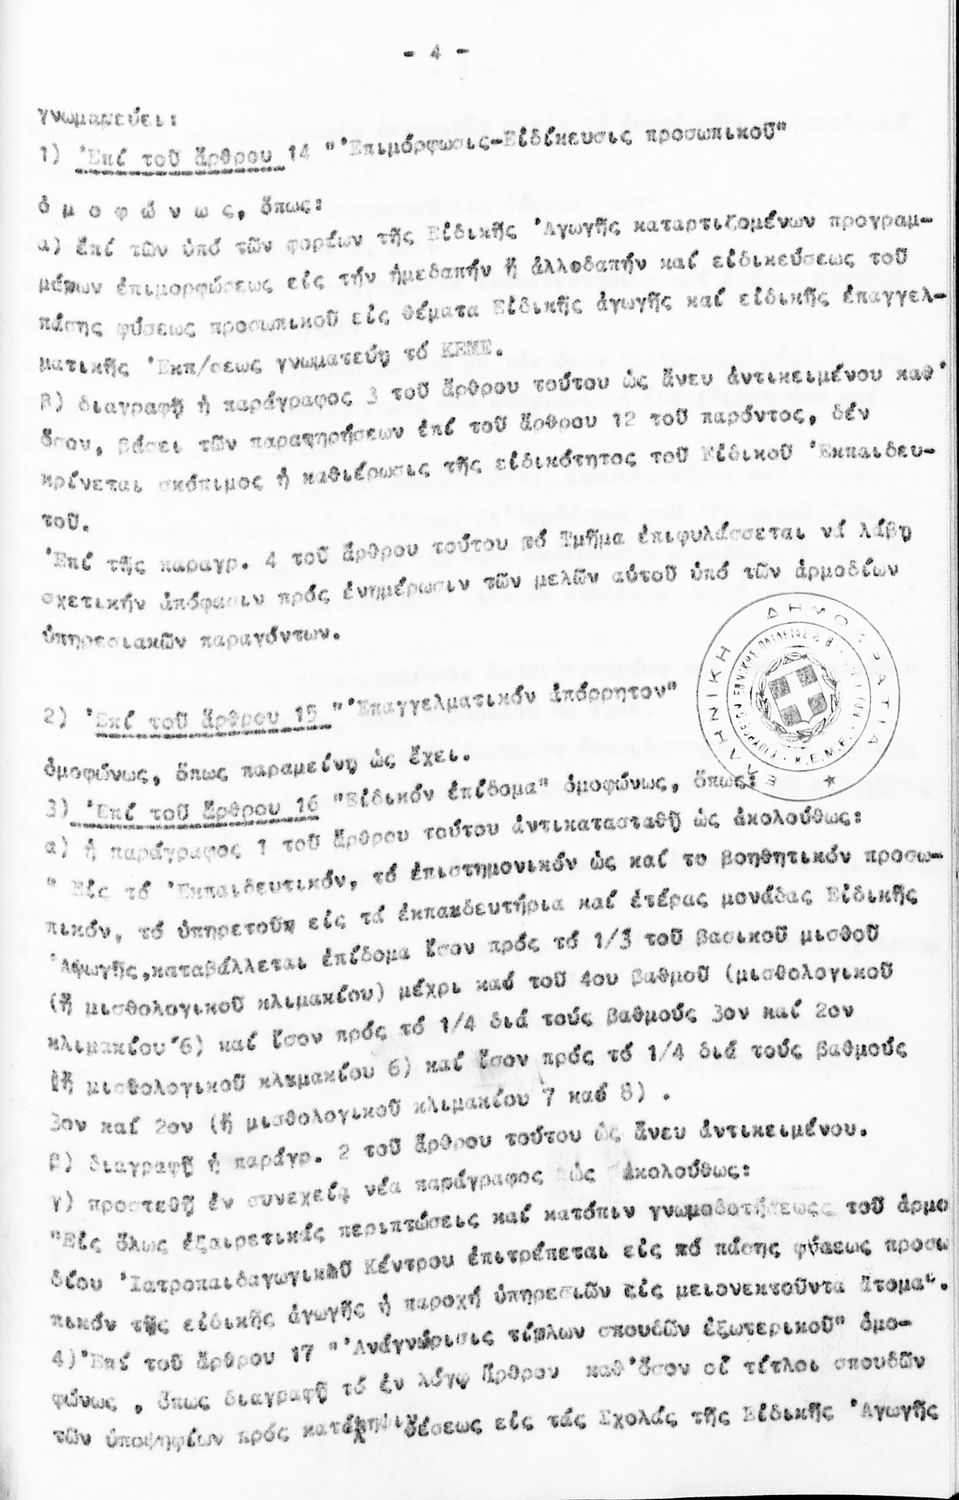 - 4 -
γνωματεύει:
1) Ἐπί τοῦ ἄρθρου 14 "Ἐπιμόρφωσις-Εἰδίκευσις προσωπικοῦ"
ὁ μ ο φ ώ ν ω ς, ὅπως:
α) ἐπί τῶν ὑπό τῶν φορέων τῆς Εἰδικῆς Ἀγωγῆς καταρτιζομένων προγραμ-
μάτων ἐπιμορφώσεως εἰς τήν ἡμεδαπήν ἤ ἀλλοδαπήν καί εἰδικεύσεως τοῦ
πάσης φύσεως προσωπικοῦ εἰς θέματα Εἰδικῆς ἀγωγῆς καί εἰδικῆς ἐπαγγελ-
ματικῆς Ἐκπ/σεως γνωματεύῃ τό ΚΕΜΕ.
β) διαγραφῇ ἡ παράγραφος 3 τοῦ ἄρθρου τούτου ὡς ἄνευ ἀντικειμένου καθ'
ὅσον, βάσει τῶν παρατηρήσεων ἐπί τοῦ ἄρθρου 12 τοῦ παρόντος, δέν
κρίνεται σκόπιμος ἡ καθιέρωσις τῆς εἰδικότητος τοῦ Εἰδικοῦ Ἐκπαιδευ-
τοῦ.
Ἐπί τῆς παραγρ. 4 τοῦ ἄρθρου τούτου τό Τμῆμα ἐπιφυλάσσεται νά λάβῃ
σχετικήν ἀπόφασιν πρός ἐνημέρωσιν τῶν μελῶν αὐτοῦ ὑπό τῶν ἁρμοδίων
ὑπηρεσιακῶν παραγόντων.
ΕΛΛΗΝΙΚΗ ΔΗΜΟΚΡΑΤΙΑ
Κ.Ε.Μ.Ε.
2) Ἐπί τοῦ ἄρθρου 15 "Ἐπαγγελματικόν ἀπόρρητον"
ὁμοφώνως, ὅπως παραμείνῃ ὡς ἔχει.
3) Ἐπί τοῦ ἄρθρου 16 "Εἰδικόν ἐπίδομα" ὁμοφώνως, ὅπως:
α) ἡ παράγραφος 1 τοῦ ἄρθρου τούτου ἀντικατασταθῇ ὡς ἀκολούθως:
" Εἰς τό Ἐκπαιδευτικόν, τό ἐπιστημονικόν ὡς καί το βοηθητικόν προσω-
πικόν, τό ὑπηρετοῦν εἰς τά ἐκπαιδευτήρια καί ἑτέρας μονάδας Εἰδικῆς
Ἀγωγῆς,καταβάλλεται ἐπίδομα ἴσον πρός τό 1/3 τοῦ βασικοῦ μισθοῦ
(ἤ μισθολογικοῦ κλιμακίου) μέχρι καί τοῦ 4ου βαθμοῦ (μισθολογικοῦ
κλιμακίου 6) καί ἴσον πρός τό 1/4 διά τούς βαθμούς 3ον καί 2ον
(ἤ μισθολογικοῦ κλιμακίου 6) καί ἴσον πρός τό 1/4 διά τούς βαθμούς
3ον καί 2ον (ἤ μισθολογικοῦ κλιμακίου 7 καί 8) .
β) διαγραφῇ ἡ παράγρ. 2 τοῦ ἄρθρου τούτου ὡς ἄνευ ἀντικειμένου.
γ) προστεθῇ ἐν συνεχείᾳ νέα παράγραφος ὡς ἀκολούθως:
"Εἰς ὅλως ἐξαιρετικάς περιπτώσεις καί κατόπιν γνωμοδοτήσεως τοῦ ἁρμο
δίου Ἰατροπαιδαγωγικοῦ Κέντρου ἐπιτρέπεται εἰς τό πάσης φύσεως προσω
πικόν τῆς εἰδικῆς ἀγωγῆς ἡ παροχή ὑπηρεσιῶν εἰς μειονεκτοῦντα ἄτομα".
4) Ἐπί τοῦ ἄρθρου 17 "Ἀναγνώρισις τίτλων σπουδῶν ἐξωτερικοῦ" ὁμο-
φώνως , ὅπως διαγραφῇ τό ἐν λόγῳ ἄρθρον καθ'ὅσον οἱ τίτλοι σπουδῶν
τῶν ὑποψηφίων πρός εἰς τάς Σχολάς τῆς Εἰδικῆς Ἀγωγῆς